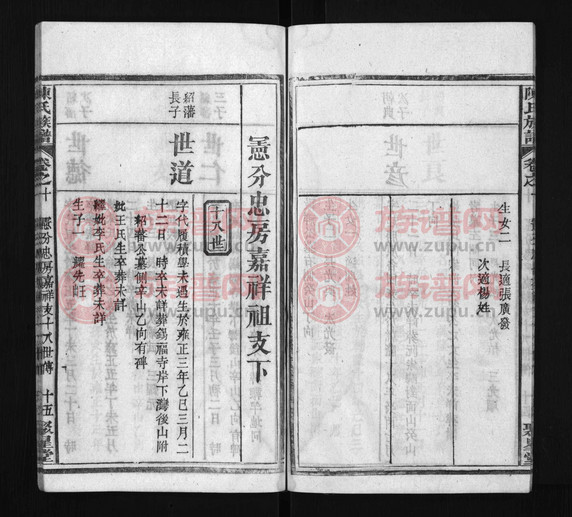 陳氏族譜
卷之十
聚星堂
生女二 長適張廣發
次適楊姓
憲分忠房嘉祥祖支下
十八世
紹藩長子
世道
字代履積學未遇生於雍正三年乙巳三月二
十二日 時卒未詳葬錫福寺岸下灣後山附
紹藩公墓側辛山乙向有碑
妣王氏生卒葬未詳
繼妣李氏生卒葬未詳
生子一 繩先
陳氏族譜
卷之十
憲分忠房嘉祥支十八世傳
十五
聚星堂
族谱网
www.zupu.cn
族谱网
www.zupu.cn
族谱网
www.zupu.cn
族谱网
www.zupu.cn